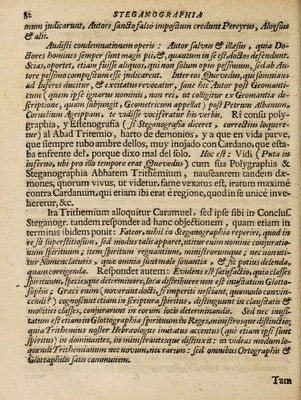 82 STEGANOGRAPHIA
num judicarunt, Autori sancto falsò impositum credunt Pereyrus, Aloysius
& alii.
Audisti condemnationem operis: Autor salvus & illæsus, quia Do-
ctores homines semper sunt magis pii, &, quantum in se est, doctos defendunt.
Scias, oportet, etiam fuisse aliquos, qui non solum opus pessimum, sed ab Au-
tore pessimo compositum esse judicarent. Inter eos Quevedus, qui somnians
ad Inferos ducitur, & excitatus revocatur, sanè hic Autor post Geomanti-
cum (quem ipse ignarus nominis, non rei, ut colligitur ex Geomantiæ de-
scriptione, quam subjungit, Geometricum appellat) post Petrum Albanum,
Cornelium Agrippam, te vidisse vociferatur his verbis. Ri conla poly-
graphia, y Estenographia (si Steganographia diceret, correctius loquere-
tur) al Abad Triternio, harto de demonios, y a que en vida parve,
que siempre tubo ambre dellos, muy inojado con Cardano, que esta-
ba enfrente del, porque dixo mal del solo. Hoc est: Vidi (Puta in
inferno, ubi pro illo tempore erat Quevedus) cum sua Polygraphia &
Steganographia Abbatem Trithemium, nauseantem tandem dæ-
mones, quorum vivus, ut videtur, fame vexatus est, iratum maximè
contra Cardanum, qui etiam ibi erat è regione, quod in se unicè inve-
heretur, &c.
Ita Trithemium alloquitur Caramuel, sed ipse sibi in Conclus.
Steganogr. tandem respondet ad hanc objectionem, quam etiam in
terminis ibidem ponit: Fateor, nihil in Steganographia reperiri, quod in
re sit superstitiosum, sed modus talis apparet, utitur enim nomine conjuratio-
num spirituum; item spiritum requantium, ministrorumque; nec monsti-
tur Nomenclaturis, quæ omnia sunt malè sonantia, & sit potius delenda,
quam corrigenda. Respondet autem: Evidens est satisfactio, quia classes
spirituum, speciesque determinare, locaque distribuere non est inusitatum Glotto-
sophis; Græci enim (noverunt docti, semperque nesciunt, quomodo convin-
cendi?) cognoscunt etiam in scriptura spiritus, distinguunt in claustatis &
mollities classes, conjurarunt in eorum locis determinandis. Sed nec inusi-
tatum est etiam in Glottographia spirituum in Reges, ministrosque distinctio;
quia Trithemius noster Hebræologus imitatus accentus (qui etiam ipsi sunt
spiritus) in dominantes, in ministrantesque distinxit: ut videas modum lo-
quendi Trithemianum nec novum, nec rarum: sed omnibus Ortographis &
Glottaphilis satis communem.
Tam